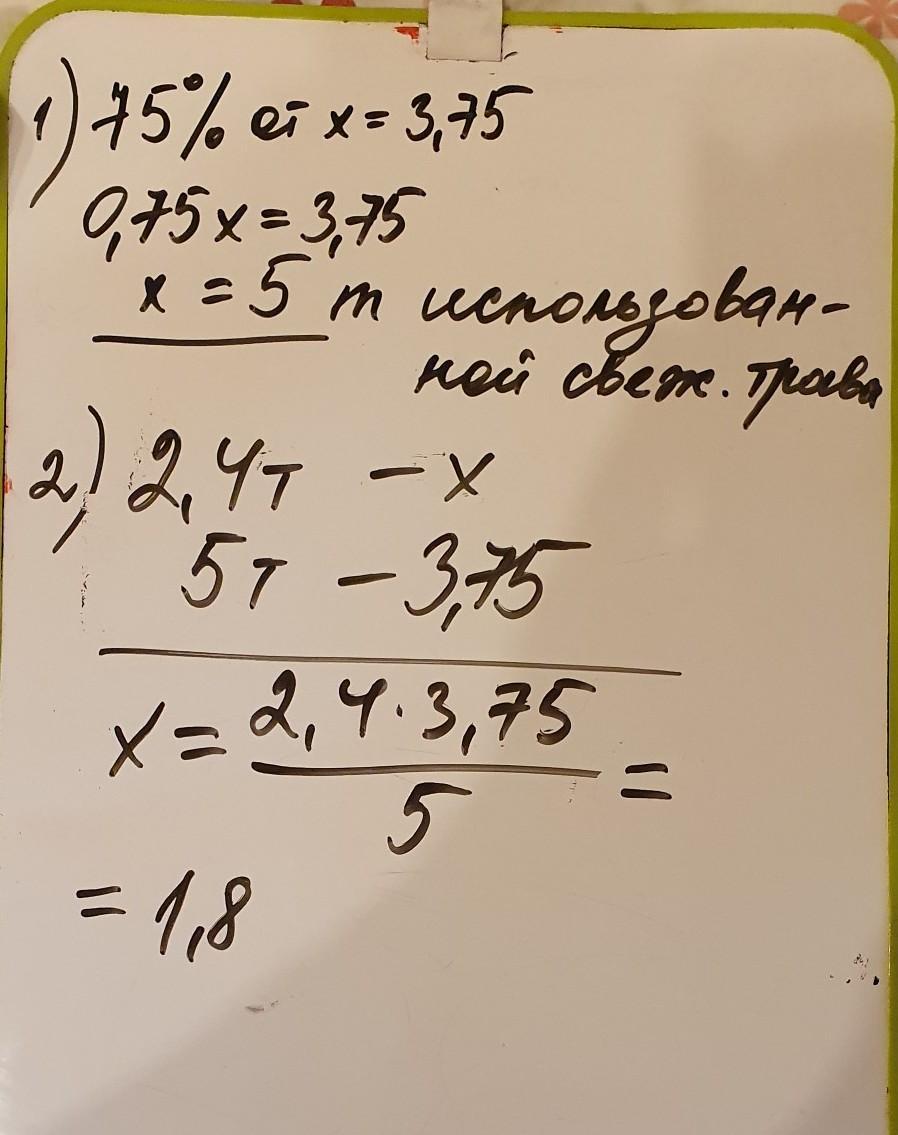 1) 75% от x = 3,75
0,75x = 3,75
x = 5 т использован-
ной свеж. трава
2) 2,4т - x
5т - 3,75
x = 2,4 · 3,75 / 5 =
= 1,8